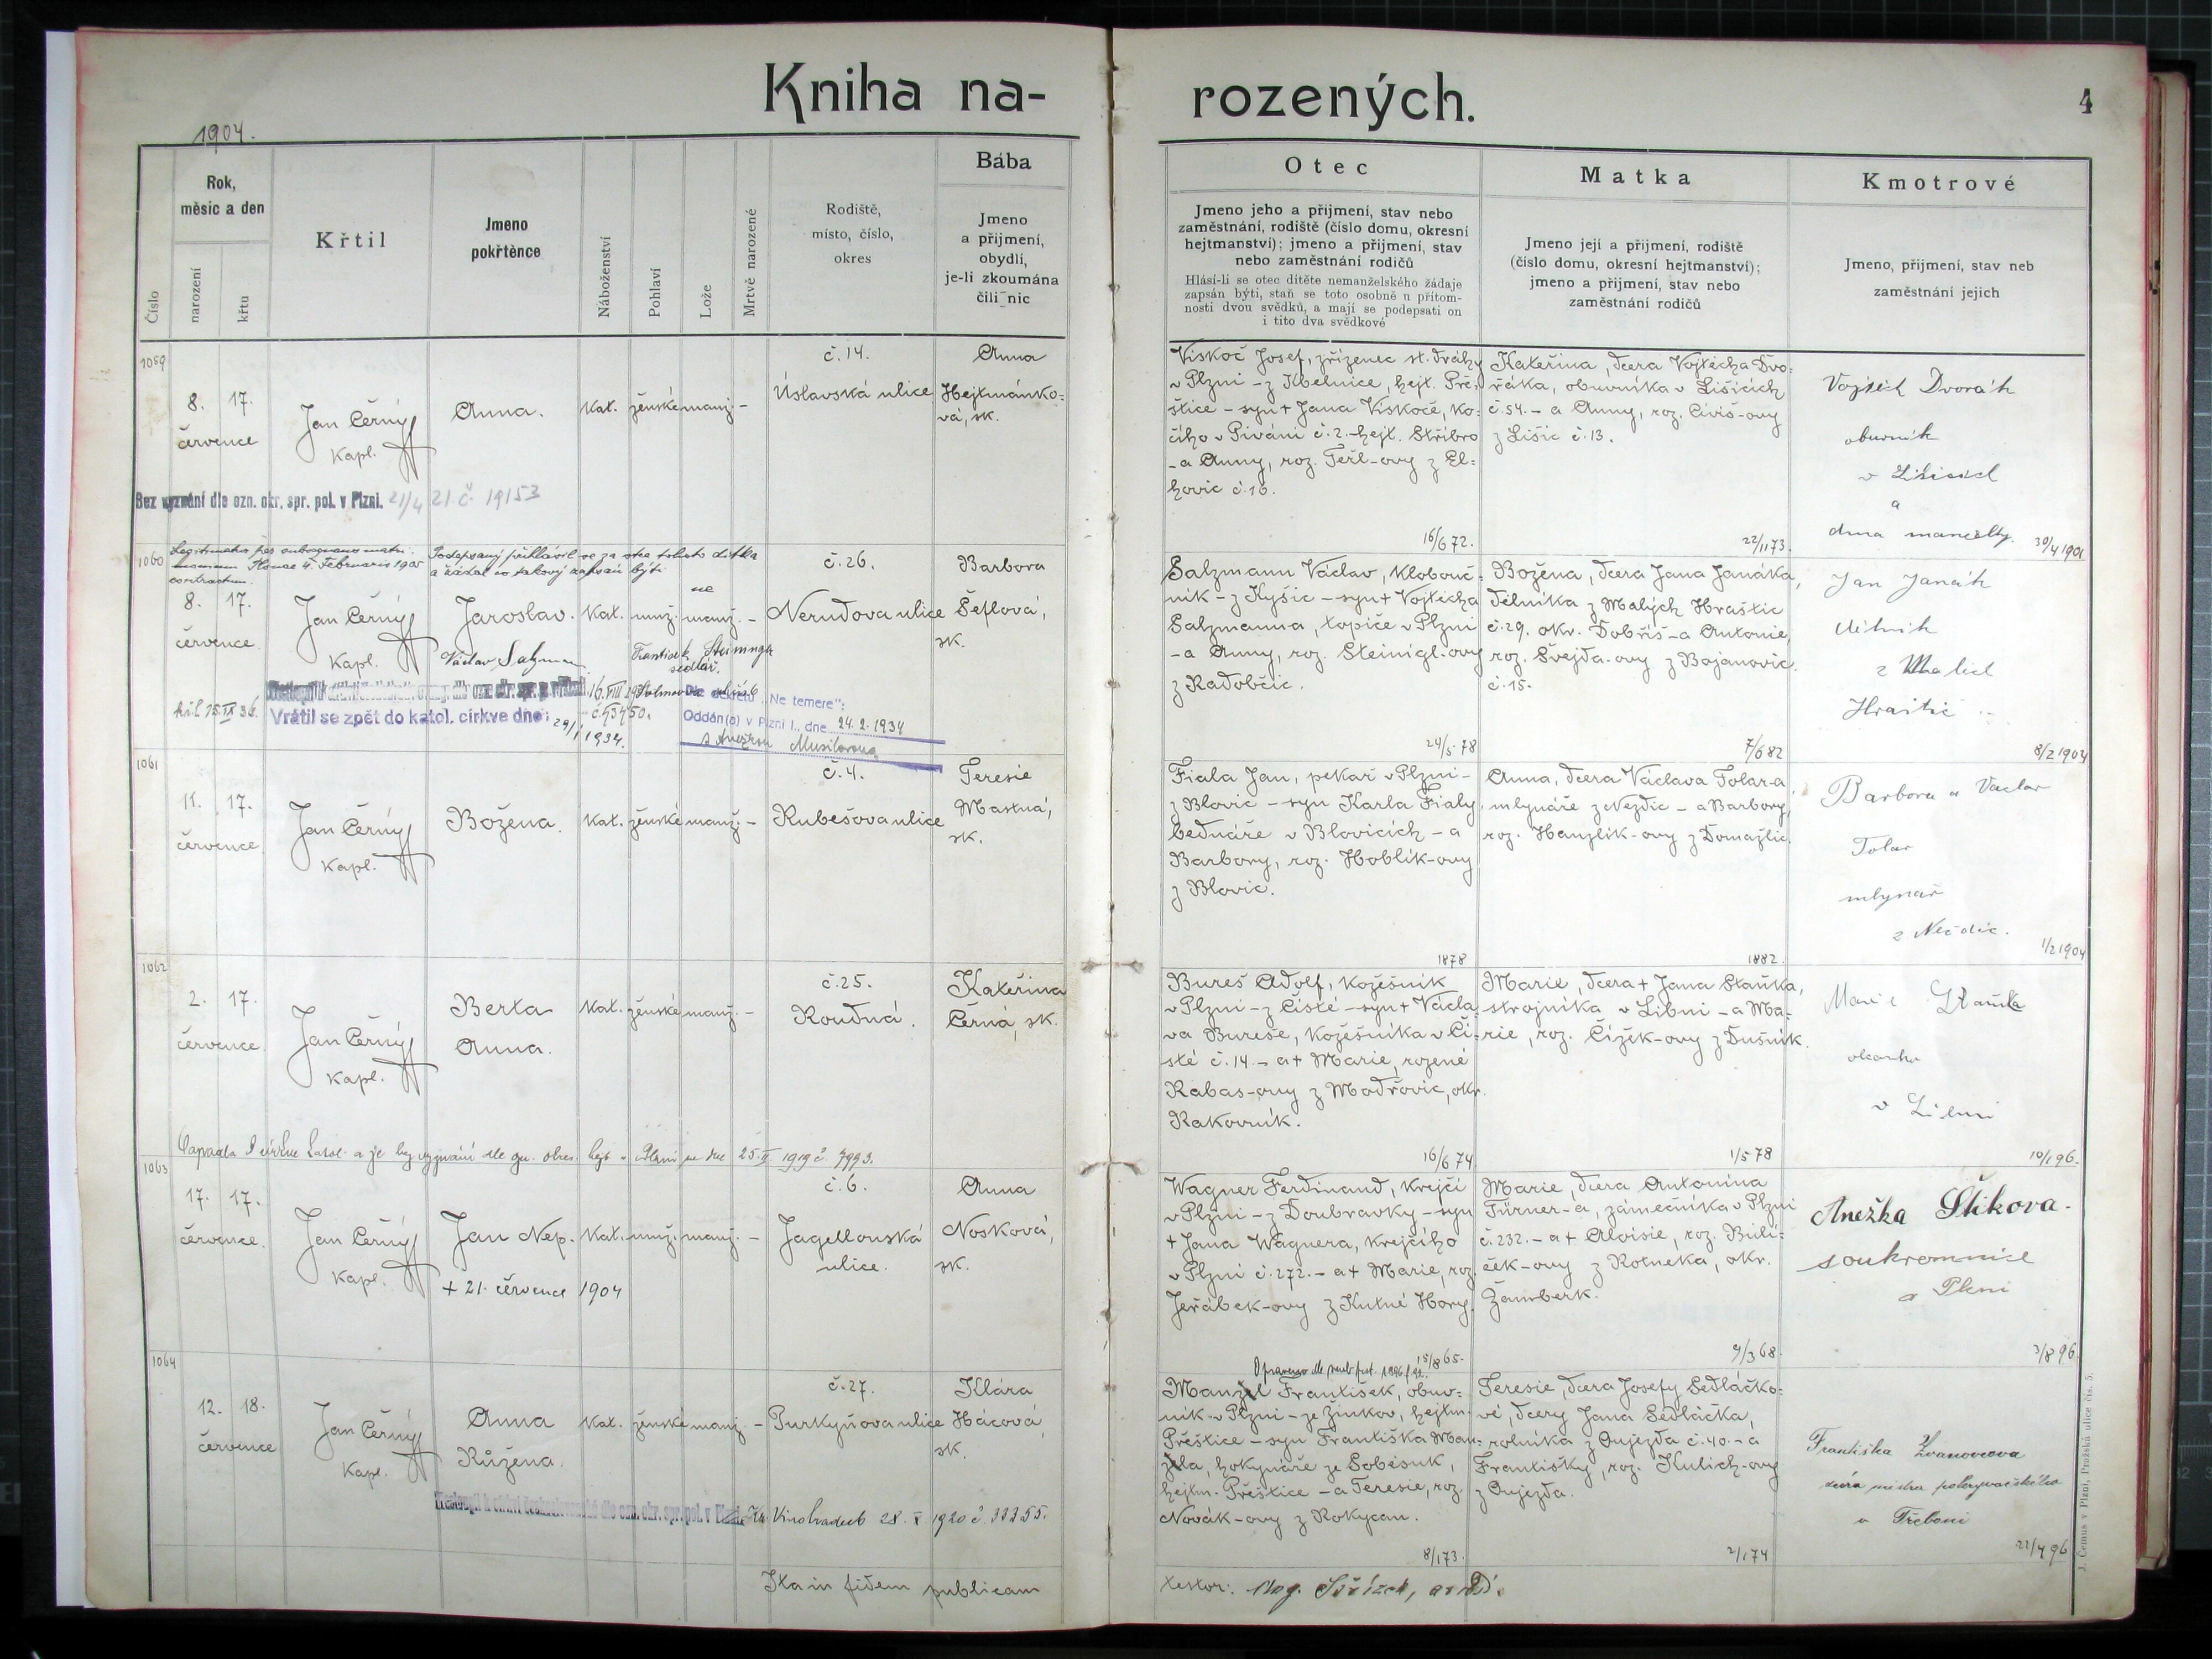 Kniha na-
rozených.
4
1904.
Číslo
Rok,
měsíc a den
narození
křtu
Křtil
Jmeno
pokřtěnce
Náboženství
Pohlaví
Lože
Mrtvě narozené
Rodiště,
místo, číslo,
okres
Bába
Jmeno
a přijmení,
obydlí,
je-li zkoumána
čili nic
Otec
Jmeno jeho a přijmení, stav nebo
zaměstnání, rodiště (číslo domu, okresní
hejtmanství); jmeno a přijmení, stav
nebo zaměstnání rodičů
Hlásí-li se otec dítěte nemanželského žádaje
zapsán býti, staň se toto osobně u přítom-
nosti dvou svědků, a mají se podepsati on
i tito dva svědkové
Matka
Jmeno její a přijmení, rodiště
(číslo domu, okresní hejtmanství);
jmeno a přijmení, stav nebo
zaměstnání rodičů
Kmotrové
Jmeno, přijmení, stav neb
zaměstnání jejich
1059
8. 17.
července
Jan Černý
Kapl.
Anna.
Kat. ženské manž. -
č. 14.
Úslavská ulice
Anna
Hejtmánko-
vá, sk.
Bez vyznání dle ozn. okr. spr. pol. v Plzni. 21/4 21 č. 19153
Viskoč Josef, zřízenec st. dráhy
v Plzni - z Kbelnice, hejt. Pře-
štice - syn + Jana Viskoče, ko-
čího v Pivání č. 2. - hejt. Stříbro
- a Anny, roz. Teřl-ovy z El-
hovic č. 16.
16/6 72.
Kateřina, dcera Vojtěcha Dvo-
řáka, obuvníka v Lišicích
č. 54. - a Anny, roz. Civiš-ovy
z Lišic č. 13.
22/11 73.
Vojtěch Dvořák
obuvník
v Lišicích
a
30/4 1901
1060
Podepsaný přihlásil se za otce tohoto dítka
a žádal co takový zapsán býti
8. 17.
července
Jan Černý
Kapl.
Jaroslav.
Václav Salzmann
Kat. muž. ne manž. -
František
sedlář.
č. 26.
Nerudova ulice
Barbora
Šeflová,
sk.
16. VIII
Vrátil se zpět do katol. církve dne: 29/1 1934.
Dle dekretu „Ne temere":
Oddán(a) v Plzni I., dne 24. 2. 1934
s Anežkou Musilovou
Salzmann Václav, klobouč-
ník - z Kyšic - syn + Vojtěcha
Salzmanna, topiče v Plzni
- a Anny, roz. Steinigl-ovy
z Radobčic.
24/5 78
Božena, dcera Jana Janáka,
dělníka z Malých Hraštic
č. 29. okr. Dobříš - a Antonie,
roz. Švejda-ovy z Bojanovic.
č. 15.
7/6 82
Jan Janák
dělník
z Malých
Hraštic
8/2 1904
1061
11. 17.
července.
Jan Černý
Kapl.
Božena.
Kat. ženské manž. -
č. 4.
Rubešova ulice
Teresie
Mastná,
sk.
Fiala Jan, pekař v Plzni -
z Blovic - syn Karla Fialy,
bednáře v Blovicích - a
Barbory, roz. Hoblík-ovy
z Blovic.
1878
Anna, dcera Václava Tolar-a,
mlynáře z Nezdic - a Barbory,
roz. Hanzlík-ovy z Domažlic.
1882.
Barbora a Václav
Tolar
mlynař
z Nezdic.
1/2 1904
1062
2. 17.
července.
Jan Černý
Kapl.
Berta
Anna.
Kat. ženské manž. -
č. 25.
Roudná.
Kateřina
Černá, sk.
Bureš Adolf, kožešník
v Plzni - z Čisté - syn + Václa-
va Bureše, kožešníka v Či-
sté č. 14. - a + Marie, rozené
Rabas-ovy z Modřovic, okr.
Rakovník.
16/6 74
Marie, dcera + Jana Staňka,
strojníka v Libni - a Ma-
rie, roz. Čížek-ovy z Dušník.
1/5 78
Marie Staňka
v Libni
10/1 96.
Vystoupila z církve katol. a je bez vyznání dle 25. II 1919 č. 7993.
1063
17. 17.
července.
Jan Černý
Kapl.
Jan Nep.
+ 21. července 1904
Kat. muž. manž. -
č. 6.
Jagellonská
ulice.
Anna
Nosková,
sk.
Wagner Ferdinand, krejčí
v Plzni - z Doubravky - syn
+ Jana Wagnera, krejčího
v Plzni č. 272. - a + Marie, roz.
Jeřábek-ovy z Kutné Hory.
15/8 65.
Marie, dcera Antonína
Türner-a, zámečníka v Plzni
č. 232. - a + Aloisie, roz. Buli-
ček-ovy z Rotneka, okr.
Žamberk.
9/3 68.
Anežka Štikova.
soukromnice
3/8 96.
1064
12. 18.
července
Jan Černý
Kapl.
Anna
Růžena.
Kat. ženské manž. -
č. 27.
Purkyňova ulice
Klára
Hácová,
sk.
Vinohradech 28. X. 1920 č. 33355.
Manžel František, obuv-
ník v Plzni - ze Žinkov, hejtm.
Přeštice - syn Františka Man-
žela, hokynáře ze Soběsuk,
hejtm. Přeštice - a Teresie, roz.
Novák-ovy z Rokycan.
8/1 73.
Teresie, dcera Josefy Sedláčko-
vé, dcery Jana Sedláčka,
rolníka z Oujezda č. 40. - a
Františky, roz. Kulich-ovy
z Oujezda.
2/1 74
Františka
v Třeboni
22/4 96
Ita in fidem publicam
testor:
J. Černus v Plzni, Pražská ulice čís. 5.